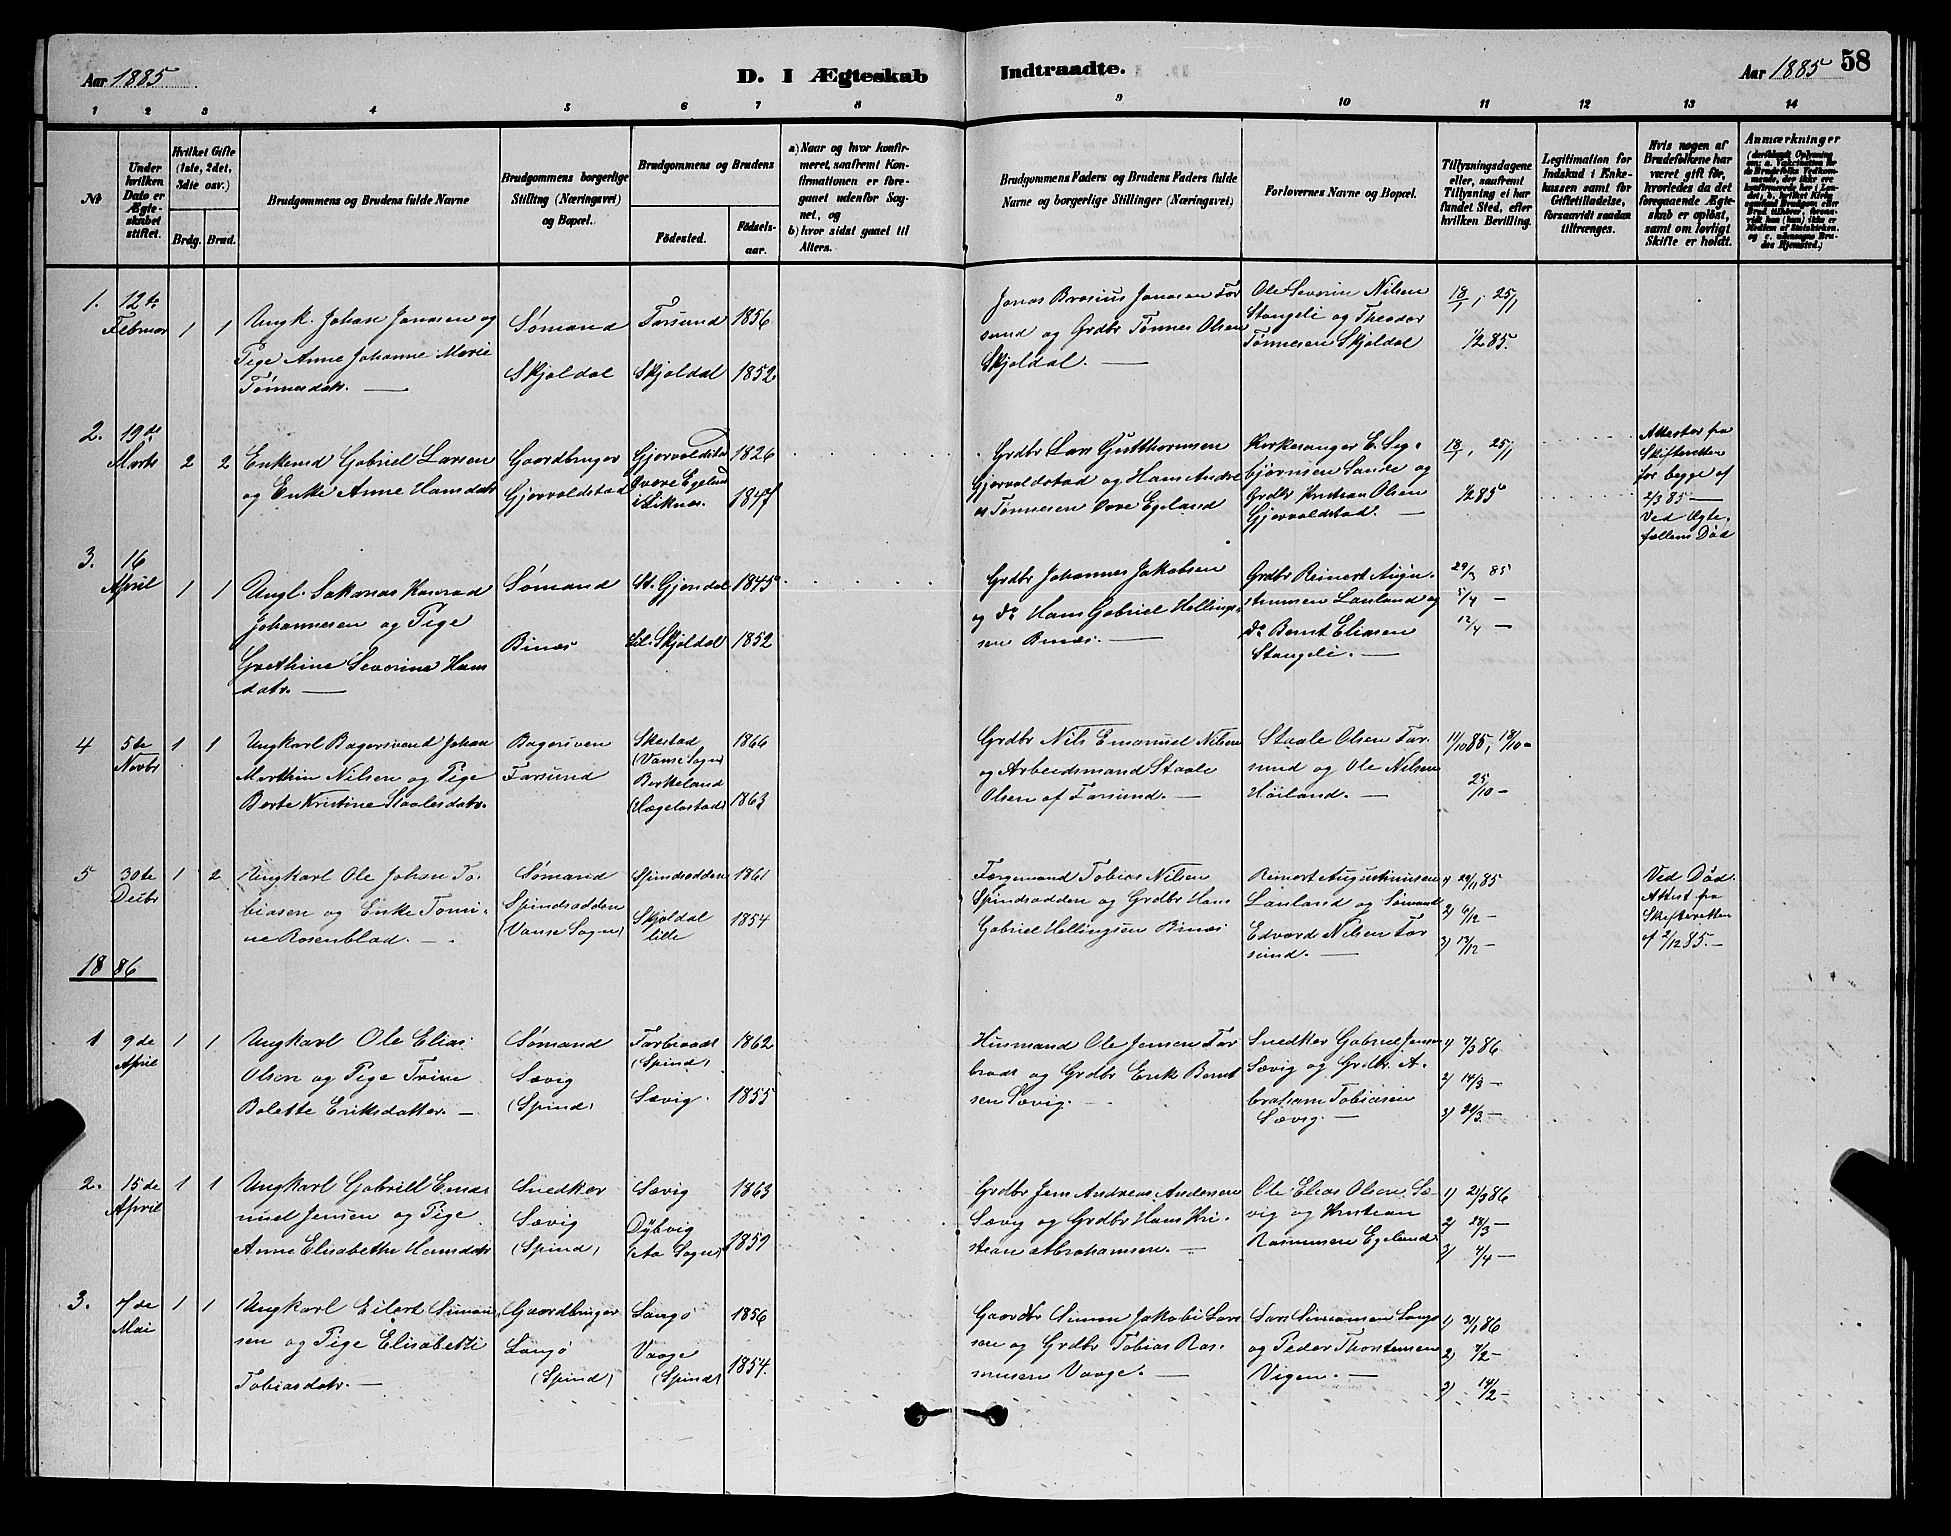 Aar 1885
D. I Ægteskab Indtraadte.
Aar 1885 58
1 2 3 4 5 6 7 8 9 10 11 12 13 14
№
Under hvilken Dato er Ægteskabet stiftet.
Hvilket Gifte (1ste, 2det, 3die osv.)
Brdg. Brud.
Brudgommens og Brudens fulde Navne
Brudgommens borgerlige Stilling (Næringsvei) og Bopæl.
Brudgommens og Brudens
Fødested. Fødselsaar.
a) Naar og hvor konfirmeret, saafremt Konfirmationen er foregaaet udenfor Sognet, og
b) hvor sidst gaaet til Alters.
Brudgommens Faders og Brudens Faders fulde Navne og borgerlige Stillinger (Næringsvei)
Forlovernes Navne og Bopæl.
Tillysningsdagene eller, saafremt Tillysning ei har fundet Sted, efter hvilken Bevilling.
Legitimation for Indskud i Enkekassen samt for Giftetilladelse, forsaavidt saadan tiltrænges.
Hvis nogen af Brudefolkene har været gift før, hvorledes da det foregaaende Ægteskab er opløst, samt om lovligt Skifte er holdt.
Anmærkninger
1. 12te Februar 1 1
Ungk. Johan Jonasen og
Pige Anne Johanne Marie
Tønnesdatr. —
Sømand
Skjoldal
Farsund 1856
Skjoldal 1852
Jonas Brosius Jonasen Far
sund og Grdbr Tønnes Olsen
Skjoldal. —
Ole Severin Nilsen
Stangeli og Theodor
Tønnesen Skjoldal
18/1, 25/1
1/2 85.
2. 19de Marts 2 2
Enkemd Gabriel Larsen
og Enke Anne Hansdatr
Gaardbruger
Gjervoldstad
Gjervoldstad 1826
Øvre Egeland
i Liknes. 1847
Grdbr Lars Gutthormsen
Gjervoldstad og Hans Andre
as Tønnesen Øvre Egeland
Kirkesanger E. Seg-
bjørnsen Sande og
Grdbr Kristian Olsen
Gjervoldstad. —
18/1, 25/1
1/2 85
Attester fra
Skifteretten
for begge af
2/3 85 —
Ved Ægte-
fællens Død
3. 16 April 1 1
Ungk. Sakarias Konrad
Johannesen og Pige
Grethine Severine Hans
datr. —
Sømand
Binæs
St. Gjersdal 1845
Lil. Skjoldal 1852
Grdbr Johannes Jakobsen
og do Hans Gabriel Hellings-
sen Binæs. —
Grdbr Reinert Augu-
stinusen Lauland og
do Bernt Eliasen
Stangeli. —
29/3 85
5/4 —
12/4 —
4 5te Novbr 1 1
Ungkarl Bagersvend Johan
Marthin Nilsen og Pige
Berte Kristine Staalesdatr.
Bagersven
Farsund
Skestad
(Vanse Sogn) 1866
Birkeland
(Hægebostad) 1863
Grdbr Nils Emanuel Nilsen
og Arbeidsmand Staale
Olsen af Farsund. —
Staale Olsen Far-
sund og Ole Nilsen
Høiland. —
11/10 85, 18/10 —
25/10 —
5 30te Decbr 1 2
Ungkarl Ole Johan To-
biasen og Enke Tomi-
ne Rosenblad. —
Sømand
Spindsodden
(Vanse Sogn)
Spindsodden 1861
Skjoldal
lille 1854
Færgemand Tobias Nilsen
Spindsodden og Grdbr Hans
Gabriel Hellingsen Binæs
Reinert Augustinusen
Lauland og Sømand
Edvard Nilsen Far
sund. —
1) 29/11 85
2) 6/12 —
3) 13/12 —
Ved Død.
Attest fra
Skifteretten
af 2/12 85. —
1886
1 9de April 1 1
Ungkarl Ole Elias
Olsen og Pige Trine
Bolette Eriksdatter. —
Sømand
Sævig
(Spind)
Farbrodt
(Spind) 1862
Sævig. 1855
Husmand Ole Jensen Far
brodt og Grdbr Erik Bernt
sen Sævig. —
Snedker Gabriel Jensen
Sævig og Grdbr. A-
braham Tobiasen
Sævig. —
1) 7/3 86
2) 14/3 —
3) 21/3 —
2. 15de April 1 1
Ungkarl Gabriel Ema-
nuel Jensen og Pige
Anne Elisabethe Hansdatr
Snedker
Sævig
(Spind)
Sævig 1863
Dybvig
(Aa Sogn) 1859
Grdbr Jens Andreas Andersen
Sævig og Grdbr Hans Kri-
stian Abrahamsen. —
Ole Elias Olsen Sæ-
vig og Kristian
Rasmusen Egeland.
1) 21/3 86
2) 28/3 —
3) 4/4 —
3. 7de Mai 1 1
Ungkarl Eilert Simon
sen og Pige Elisabeth
Tobiasdatr. —
Gaardbruger
Langø
(Spind)
Langø 1856
Vaage
(Spind) 1854.
Gaardbr Simon Jakobi Lars
sen og Grdbr Tobias Ras-
musen Vaage. —
Lars Simonsen Langø
og Peder Thorstensen
Vigen. —
1) 31/1 86
2) 7/2 —
3) 14/2 —